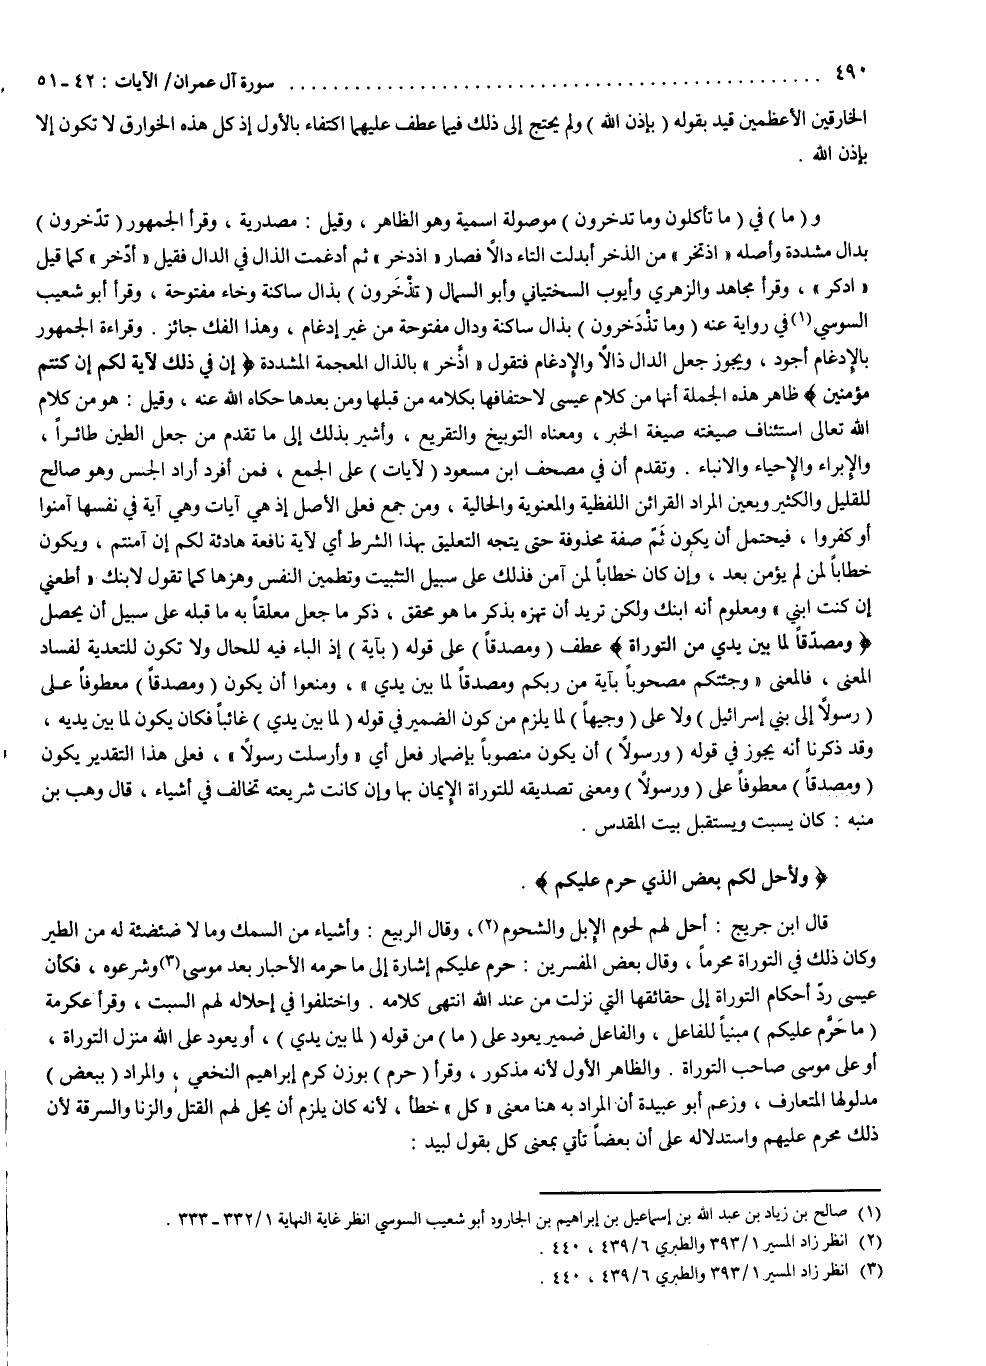 ٤٩٠ ........................................ سورة آل عمران/ الآيات : ٤٢ - ٥١
الخارقين الأعظمين قيد بقوله ( بإذن الله ) ولم يحتج إلى ذلك فيما عطف عليهما اكتفاء بالأول إذ كل هذه الخوارق لا تكون إلا
بإذن الله .
و ( ما ) في ( ما تأكلون وما تدخرون ) موصولة اسمية وهو الظاهر ، وقيل : مصدرية ، وقرأ الجمهور ( تدّخرون )
بدال مشددة وأصله « اذتخر » من الذخر أبدلت التاء دالاً فصار « اذدخر » ثم أدغمت الذال في الدال فقيل « أدّخر » كما قيل
« ادكر » ، وقرأ مجاهد والزهري وأيوب السختياني وأبو السمال ( تذْخَرون ) بذال ساكنة وخاء مفتوحة ، وقرأ أبو شعيب
السوسي (١) في رواية عنه ( وما تذْدَخرون ) بذال ساكنة ودال مفتوحة من غير إدغام ، وهذا الفك جائز . وقراءة الجمهور
بالإدغام أجود ، ويجوز جعل الدال ذالاً والإدغام فتقول « اذَّخر » بالذال المعجمة المشددة ﴿ إن في ذلك لآية لكم إن كنتم
مؤمنين ﴾ ظاهر هذه الجملة أنها من كلام عيسى لاحتفافها بكلامه من قبلها ومن بعدها حكاه الله عنه ، وقيل : هو من كلام
الله تعالى استئناف صيغته صيغة الخبر ، ومعناه التوبيخ والتقريع ، وأشير بذلك إلى ما تقدم من جعل الطين طائراً ،
والإبراء والإحياء والانباء . وتقدم أن في مصحف ابن مسعود ( لآيات ) على الجمع ، فمن أفرد أراد الجنس وهو صالح
للقليل والكثير ويعين المراد القرائن اللفظية والمعنوية والحالية ، ومن جمع فعلى الأصل إذ هي آيات وهي آية في نفسها آمنوا
أو كفروا ، فيحتمل أن يكون ثَمّ صفة محذوفة حتى يتجه التعليق بهذا الشرط أي لآية نافعة هادئة لكم إن آمنتم ، ويكون
خطاباً لمن لم يؤمن بعد ، وإن كان خطاباً لمن آمن فذلك على سبيل التثبيت وتطمين النفس وهزها كما تقول لابنك « أطعني
إن كنت ابني » ومعلوم أنه ابنك ولكن تريد أن تهزه بذكر ما هو محقق ، ذكر ما جعل معلقاً به ما قبله على سبيل أن يحصل
﴿ ومصدّقاً لما بين يدي من التوراة ﴾ عطف ( ومصدقاً ) على قوله ( بآية ) إذ الباء فيه للحال ولا تكون للتعدية لفساد
المعنى ، فالمعنى « وجئتكم مصحوباً بآية من ربكم ومصدقاً لما بين يدي » ، ومنعوا أن يكون ( ومصدقاً ) معطوفاً على
( رسولاً إلى بني إسرائيل ) ولا على ( وجيهاً ) لما يلزم من كون الضمير في قوله ( لما بين يدي ) غائباً فكان يكون لما بين يديه ،
وقد ذكرنا أنه يجوز في قوله ( ورسولاً ) أن يكون منصوباً بإضمار فعل أي « وأرسلت رسولاً » ، فعلى هذا التقدير يكون
( ومصدقاً ) معطوفاً على ( ورسولاً ) ومعنى تصديقه للتوراة الإيمان بها وإن كانت شريعته تخالف في أشياء ، قال وهب بن
منبه : كان يسبت ويستقبل بيت المقدس .
﴿ ولأحل لكم بعض الذي حرم عليكم ﴾ .
قال ابن جريج : أحل لهم لحوم الإبل والشحوم (٢) ، وقال الربيع : وأشياء من السمك وما لا ضئضئة له من الطير
وكان ذلك في التوراة محرماً ، وقال بعض المفسرين : حرم عليكم إشارة إلى ما حرمه الأحبار بعد موسى (٣) وشرعوه ، فكأن
عيسى ردّ أحكام التوراة إلى حقائقها التي نزلت من عند الله انتهى كلامه . واختلفوا في إحلاله لهم السبت ، وقرأ عكرمة
( ما حَرَّم عليكم ) مبنياً للفاعل ، والفاعل ضمير يعود على ( ما ) من قوله ( لما بين يدي ) ، أو يعود على الله منزل التوراة ،
أو على موسى صاحب التوراة . والظاهر الأول لأنه مذكور ، وقرأ ( حرم ) بوزن كرم إبراهيم النخعي ، والمراد ( ببعض )
مدلولها المتعارف ، وزعم أبو عبيدة أن المراد به هنا معنى « كل » خطأ ، لأنه كان يلزم أن يحل لهم القتل والزنا والسرقة لأن
ذلك محرم عليهم واستدلاله على أن بعضاً تأتي بمعنى كل بقول لبيد :
(١) صالح بن زياد بن عبد الله بن إسماعيل بن إبراهيم بن الجارود أبو شعيب السوسي انظر غاية النهاية ١/ ٣٣٢ - ٣٣٣ .
(٢) انظر زاد المسير ١/ ٣٩٣ والطبري ٦/ ٤٣٩ ، ٤٤٠ .
(٣) انظر زاد المسير ١/ ٣٩٣ والطبري ٦/ ٤٣٩ ، ٤٤٠ .